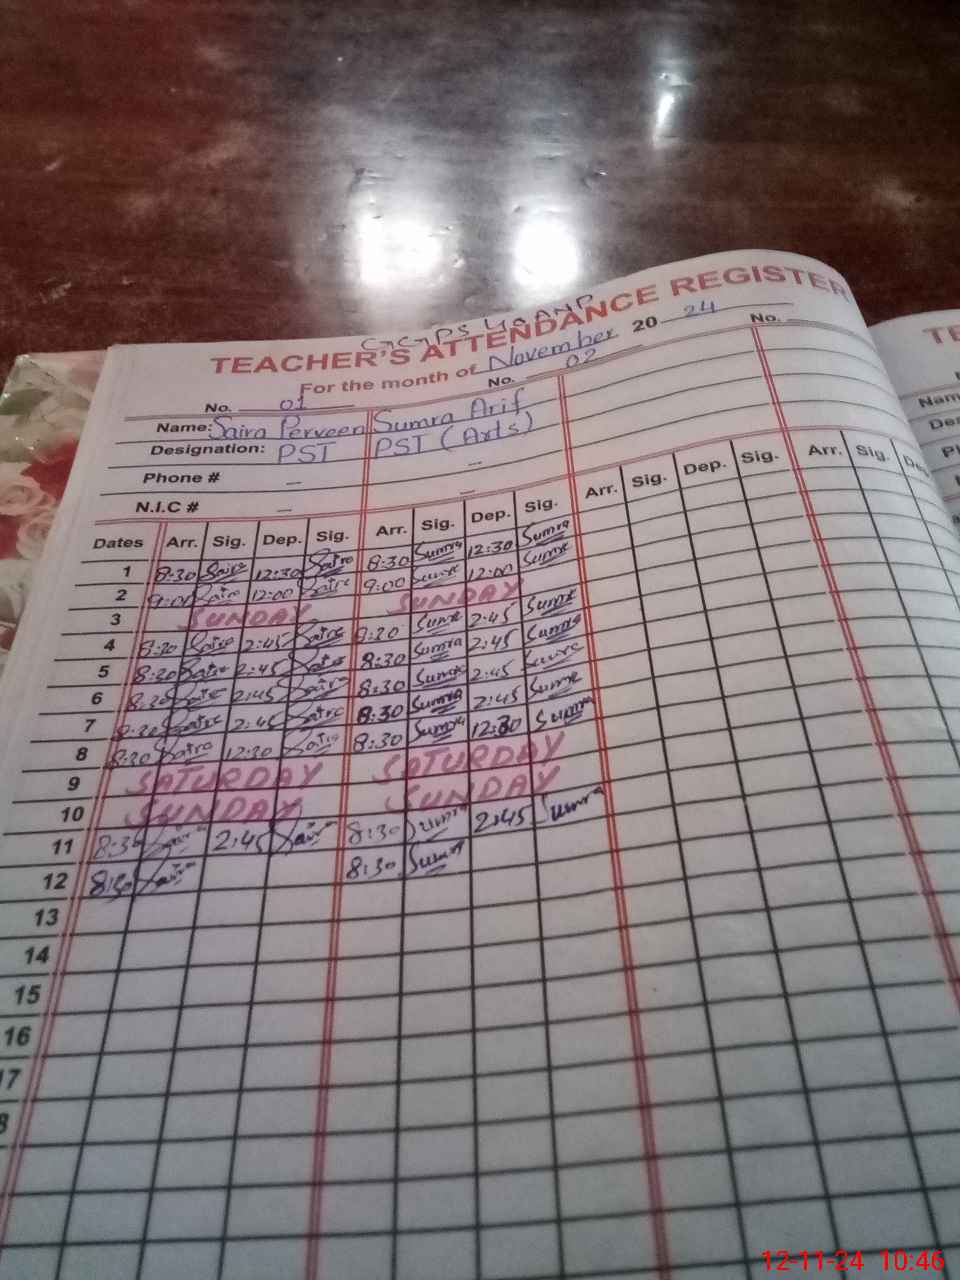 GGPS
TEACHER'S ATTENDANCE REGISTER
For the month of November 2024
No. 01 No. 02 No.
Name: Saira Perveen Sumra Arif
Designation: PST PST (Arts)
Phone # — —
N.I.C # — —
Dates Arr. Sig. Dep. Sig. Arr. Sig. Dep. Sig. Arr. Sig. Dep. Sig. Arr. Sig. De
1 8:30 Saira 12:30 Saira 8:30 Sumra 12:30 Sumra
2 9:00 Saira 12:00 Saira 9:00 Sumra 12:00 Sumra
3 SUNDAY SUNDAY
4 8:30 Saira 2:45 Saira 8:30 Sumra 2:45 Sumra
5 8:30 Saira 2:45 Saira 8:30 Sumra 2:45 Sumra
6 8:30 Saira 2:45 Saira 8:30 Sumra 2:45 Sumra
7 8:30 Saira 2:45 Saira 8:30 Sumra 2:45 Sumra
8 8:30 Saira 12:30 Saira 8:30 Sumra 12:30 Sumra
9 SATURDAY SATURDAY
10 SUNDAY SUNDAY
11 8:30 Saira 2:45 Saira 8:30 Sumra 2:45 Sumra
12 8:30 Saira 8:30 Sumra
13
14
15
16
17
8
TE
Nam
Des
P
12-11-24 10:46